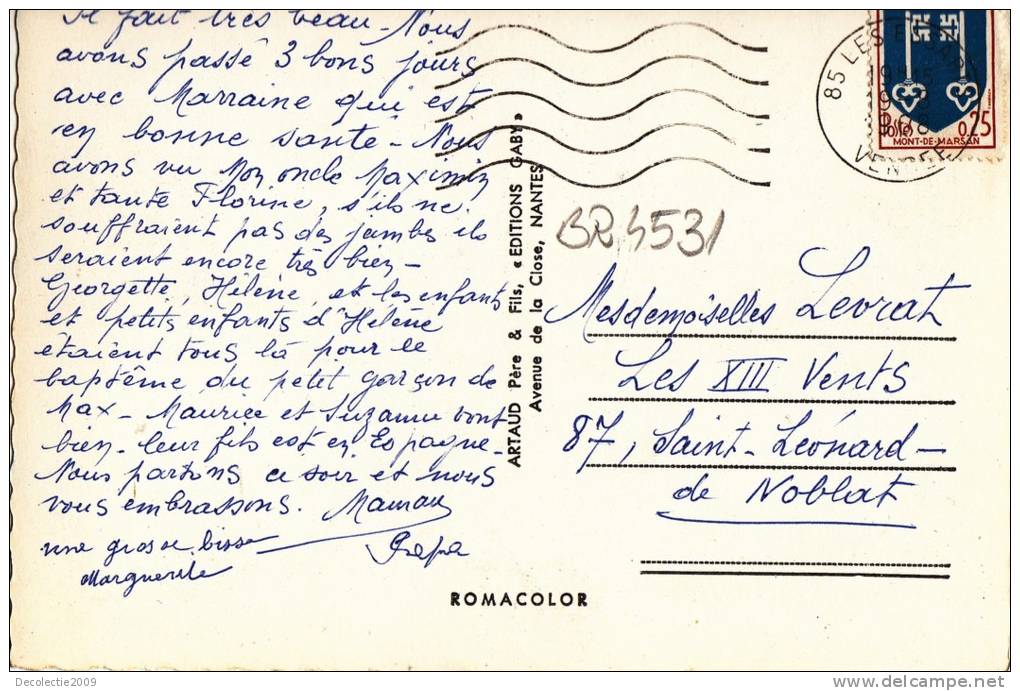 Il fait très beau - Nous
avons passé 3 bons jours
avec Marraine qui est
en bonne santé - Nous
avons vu Mon oncle Maximin
et tante Florine, s'ils ne
souffraient pas des jambes ils
seraient encore très bien -
Georgette, Hélène, et les enfants
et petits enfants d'Hélène
étaient tous là pour le
baptême du petit garçon de
Max - Maurice et Suzanne vont
bien - leur fils est en Espagne -
Nous partons ce soir et nous
vous embrassons. Maman
Papa
une grosse bisse
Marguerite
ARTAUD Père & Fils, « EDITIONS GABY »
Avenue de la Close, NANTES
BR 4531
85 LES
VENDEE
Postes 0,25
MONT-DE-MARSAN
Mesdemoiselles Levrat
Les XIII Vents
87, Saint-Léonard -
de Noblat
ROMACOLOR
Decolectie2009
www.delcampe.net